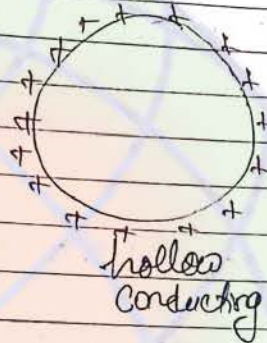 hollow
conducting